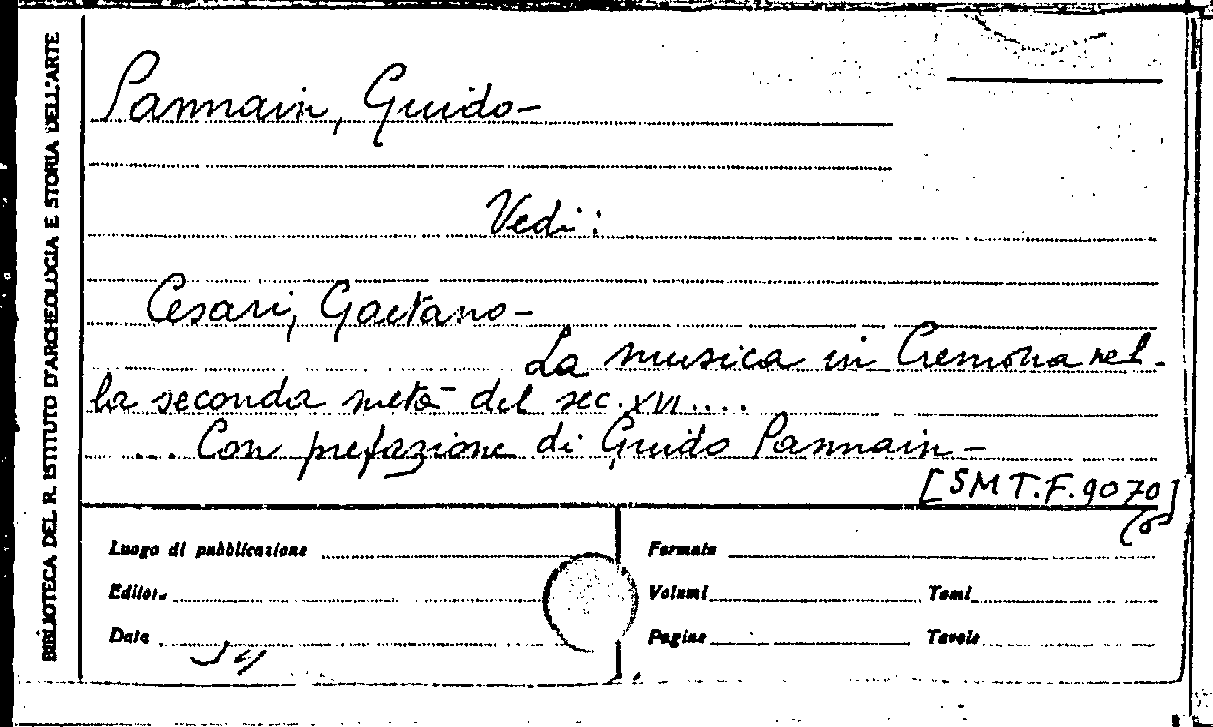 BIBLIOTECA DEL R. ISTITUTO D'ARCHEOLOGIA E STORIA DELL'ARTE
Pannain, Guido-
Vedi:
Cesari, Gaetano-
La musica in Cremona nel-
la seconda metà del sec. XVI....
... Con prefazione di Guido Pannain-
[SMT.F.9070]
Luogo di pubblicazione
Formato
Editore
Volumi
Tomi
Data
Pagine
Tavole